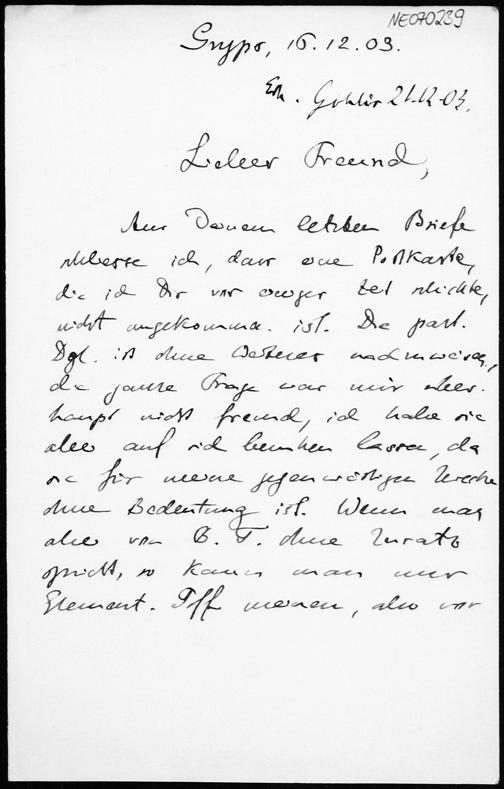 NE070239
Gryps, 16.12.03.
Erh. Gohlis 21.12.03.
Lieber Freund,
Aus Deinem letzten Briefe
schliesse ich, dass eine Postkarte,
die ich Dir vor einiger Zeit schickte,
nicht angekommen ist. Die part.
Dgl. ist ohne Weiteres nachzuweisen,
die ganze Frage war mir über-
haupt nicht fremd, ich habe sie
aber auf sich beruhen lassen, da
sie für meine gegenwärtigen Zwecke
ohne Bedeutung ist. Wenn man
aber von B. F. ohne Zusatz
spricht, so kann man nur
Element. Tff meinen, also vor